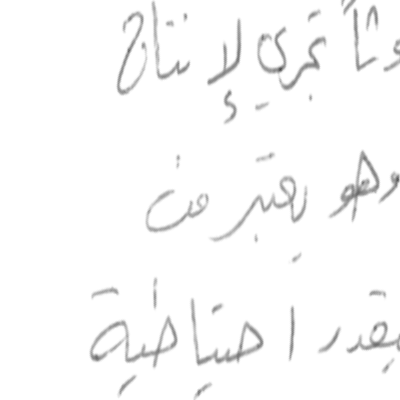 تجري لإنتاج
وهو يعتبر من
يقدر احتياطية